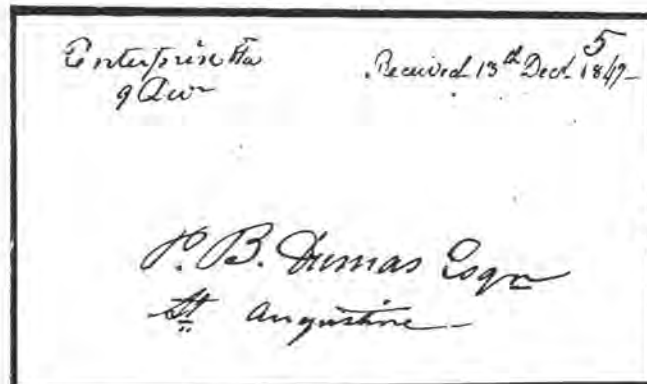 Enterprise Fla
9 Dec
5
Received 13th Dect. 1847-
P. B. Dumas Esqr
St Augustine -